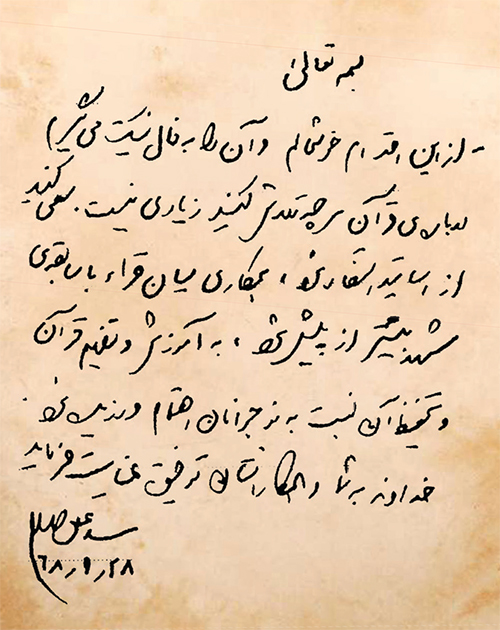 بسمه تعالی
- از این اقدام خوشحالم و آن را به فال نیک می‌گیرم
درباره‌ی قرآن هر چه تلاش کنید زیادی نیست. سعی کنید
از اساتید استفاده شود، همکاری میان قراء با سابقه‌ی
مشهد بیشتر از پیش شود، به آموزش و تفهیم قرآن
و تحفیظ آن نسبت به نوجوانان اهتمام ورزیده شود.
خداوند به شما و همکارانتان توفیق عنایت فرماید
سید علی
۶۸٫۱٫۲۸